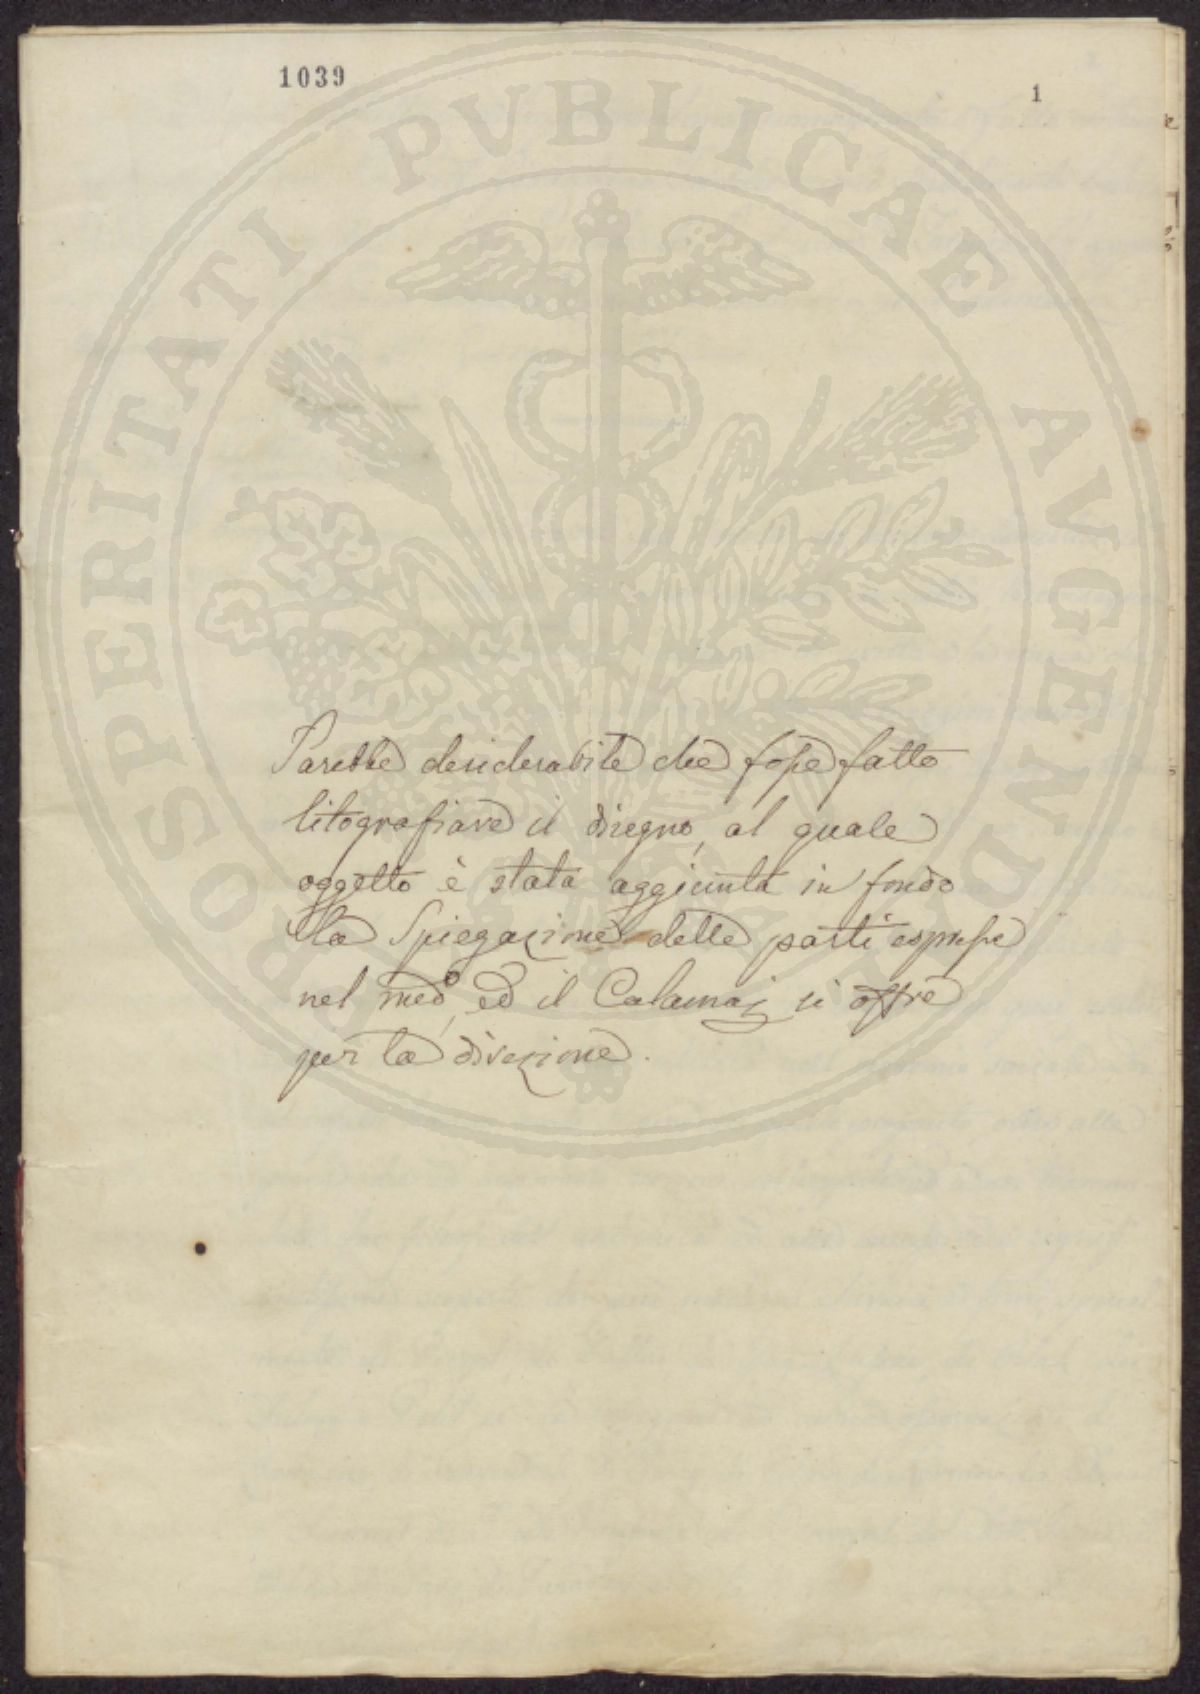 1039
1
PROSPERITATI PVBLICAE AVGENDAE
Parebbe desiderabile che fosse fatto
litografiare il disegno, al quale
oggetto è stata aggiunta in fondo
la Spiegazione delle parti espresse
nel medº, ed il Calamaj si offre
per la direzione.